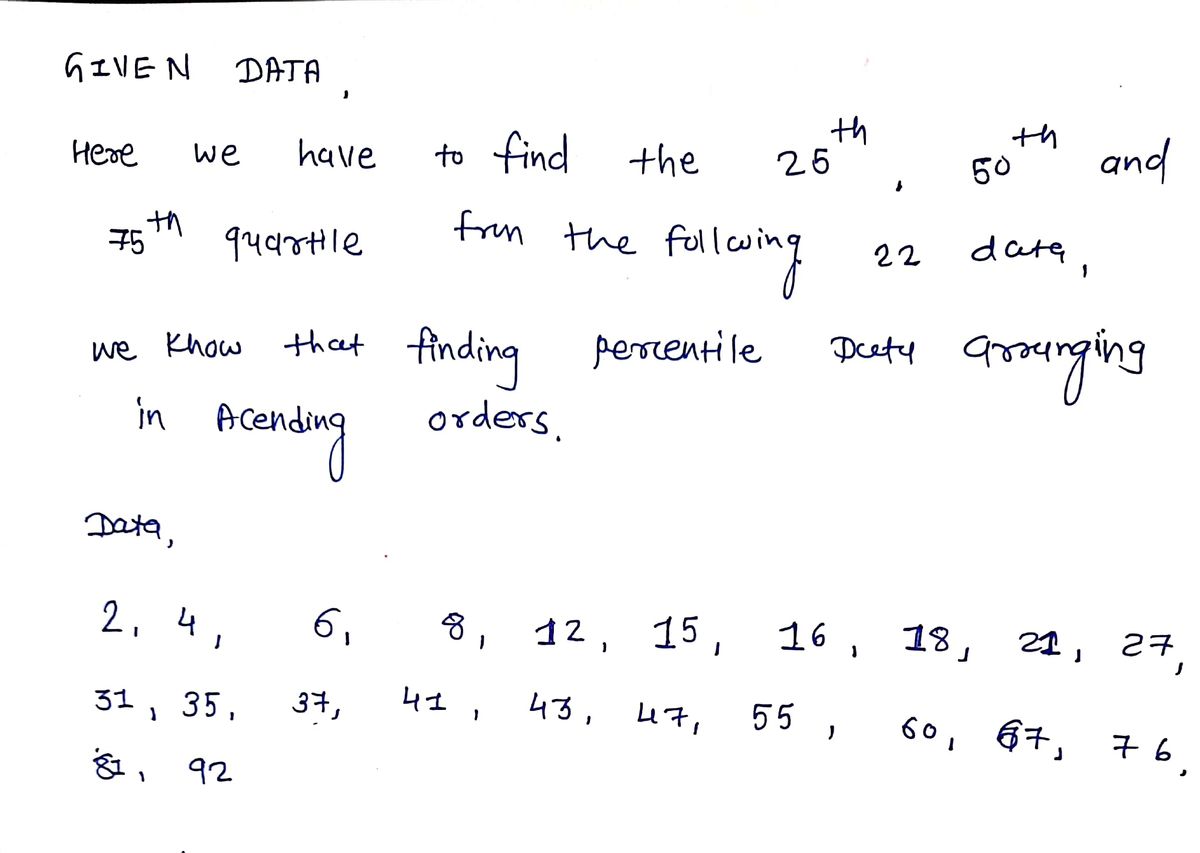 GIVEN DATA,
Here we have to find the 25th, 50th and
75th quartile frm the follwing 22 data,
we know that finding percentile Data arranging
in Acending orders.
Data,
2, 4, 6, 8, 12, 15, 16, 18, 21, 27,
31, 35, 37, 41, 43, 47, 55, 60, 67, 76,
81, 92